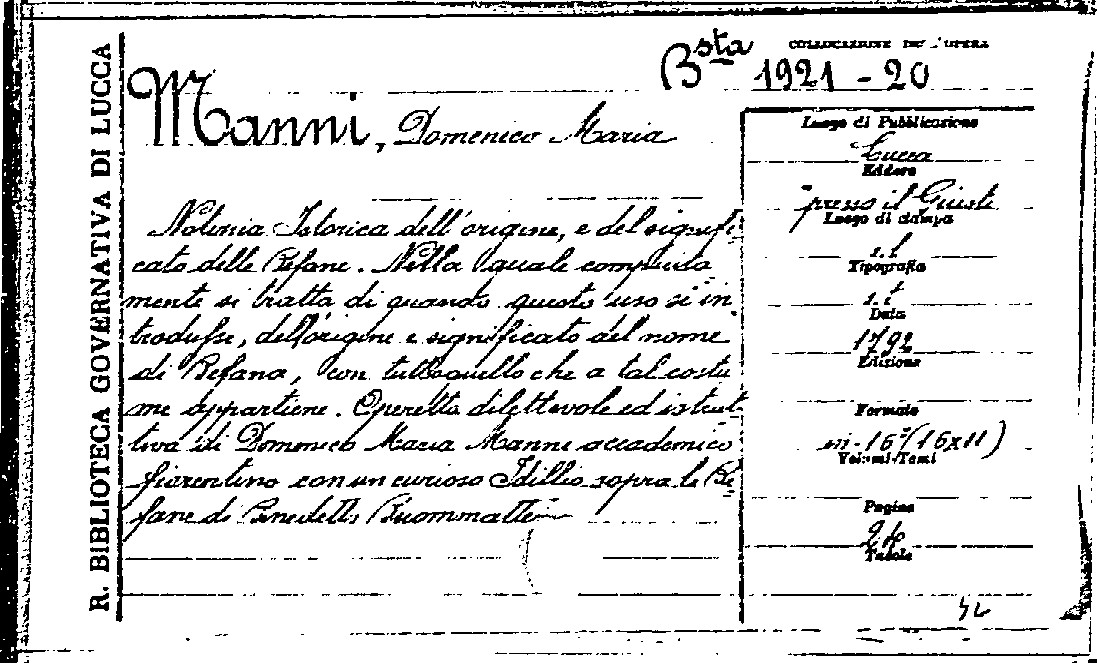 R. BIBLIOTECA GOVERNATIVA DI LUCCA
COLLOCAZIONE DELL'OPERA
Bsta 1921 - 20
Manni, Domenico Maria
Notizia Istorica dell'origine, e del signifi
cato delle Befane. Nella quale compiuta
mente si tratta di quando questo uso si in
trodusse, dell'origine e significato del nome
di Befana, con tutto quello che a tal costu
me appartiene. Operetta dilettevole ed istrut
tiva di Domenico Maria Manni accademico
fiorentino con un curioso Idillio sopra le Be
fane di Benedetto Buommattei
Luogo di Pubblicazione
Lucca
Editore
presso il Giusti
Luogo di stampa
s.l
Tipografia
s.t
Data
1792
Edizione
Formato
in-16° (16x11)
Volumi-Tomi
Pagine
24
Tavole